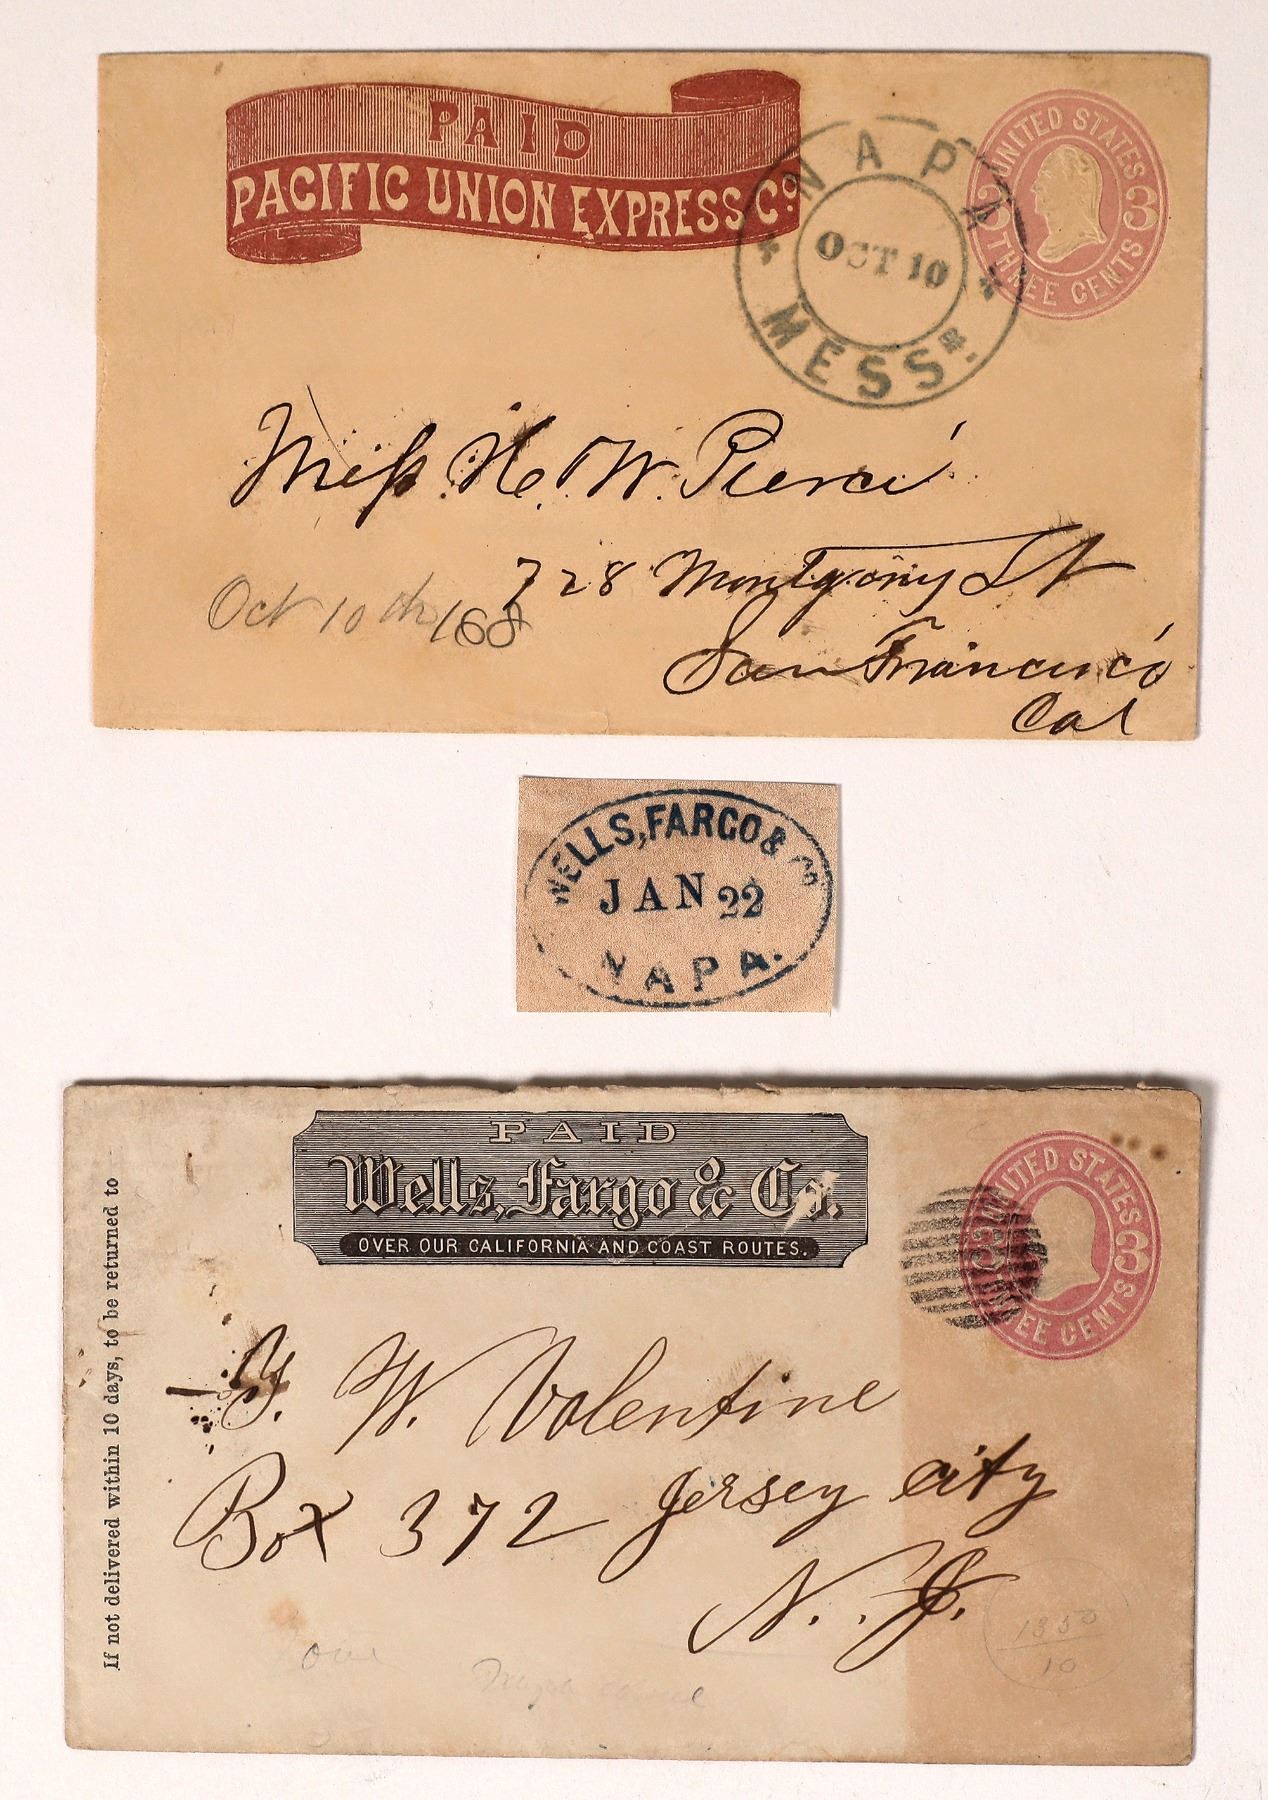 PAID
PACIFIC UNION EXPRESS Co.
NAPA
OCT 10
MESSR.
UNITED STATES
3 3
THREE CENTS
Miss H. W. Pierce
728 Montgomy St
Oct 10th /68
San Francisco
Cal
WELLS, FARGO & Co
JAN 22
NAPA.
PAID
Wells, Fargo & Co.
OVER OUR CALIFORNIA AND COAST ROUTES.
UNITED STATES
3 3
THREE CENTS
If not delivered within 10 days, to be returned to
W. Valentine
Box 372 Jersey City
N. J.
1350
10